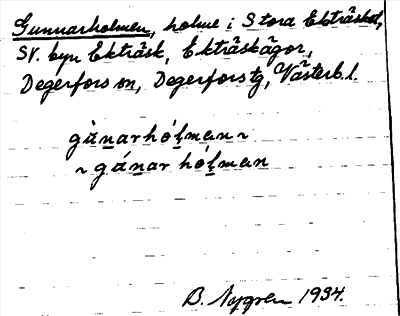 Gunnarholmen, holme i Stora Ekträsket,
SV. byn Ekträsk, Ekträskägor,
Degerfors sn, Degerfors tg, Västerb. l.
gùnarhólman ~
~ gúnar hólman
B. Nygren 1934.